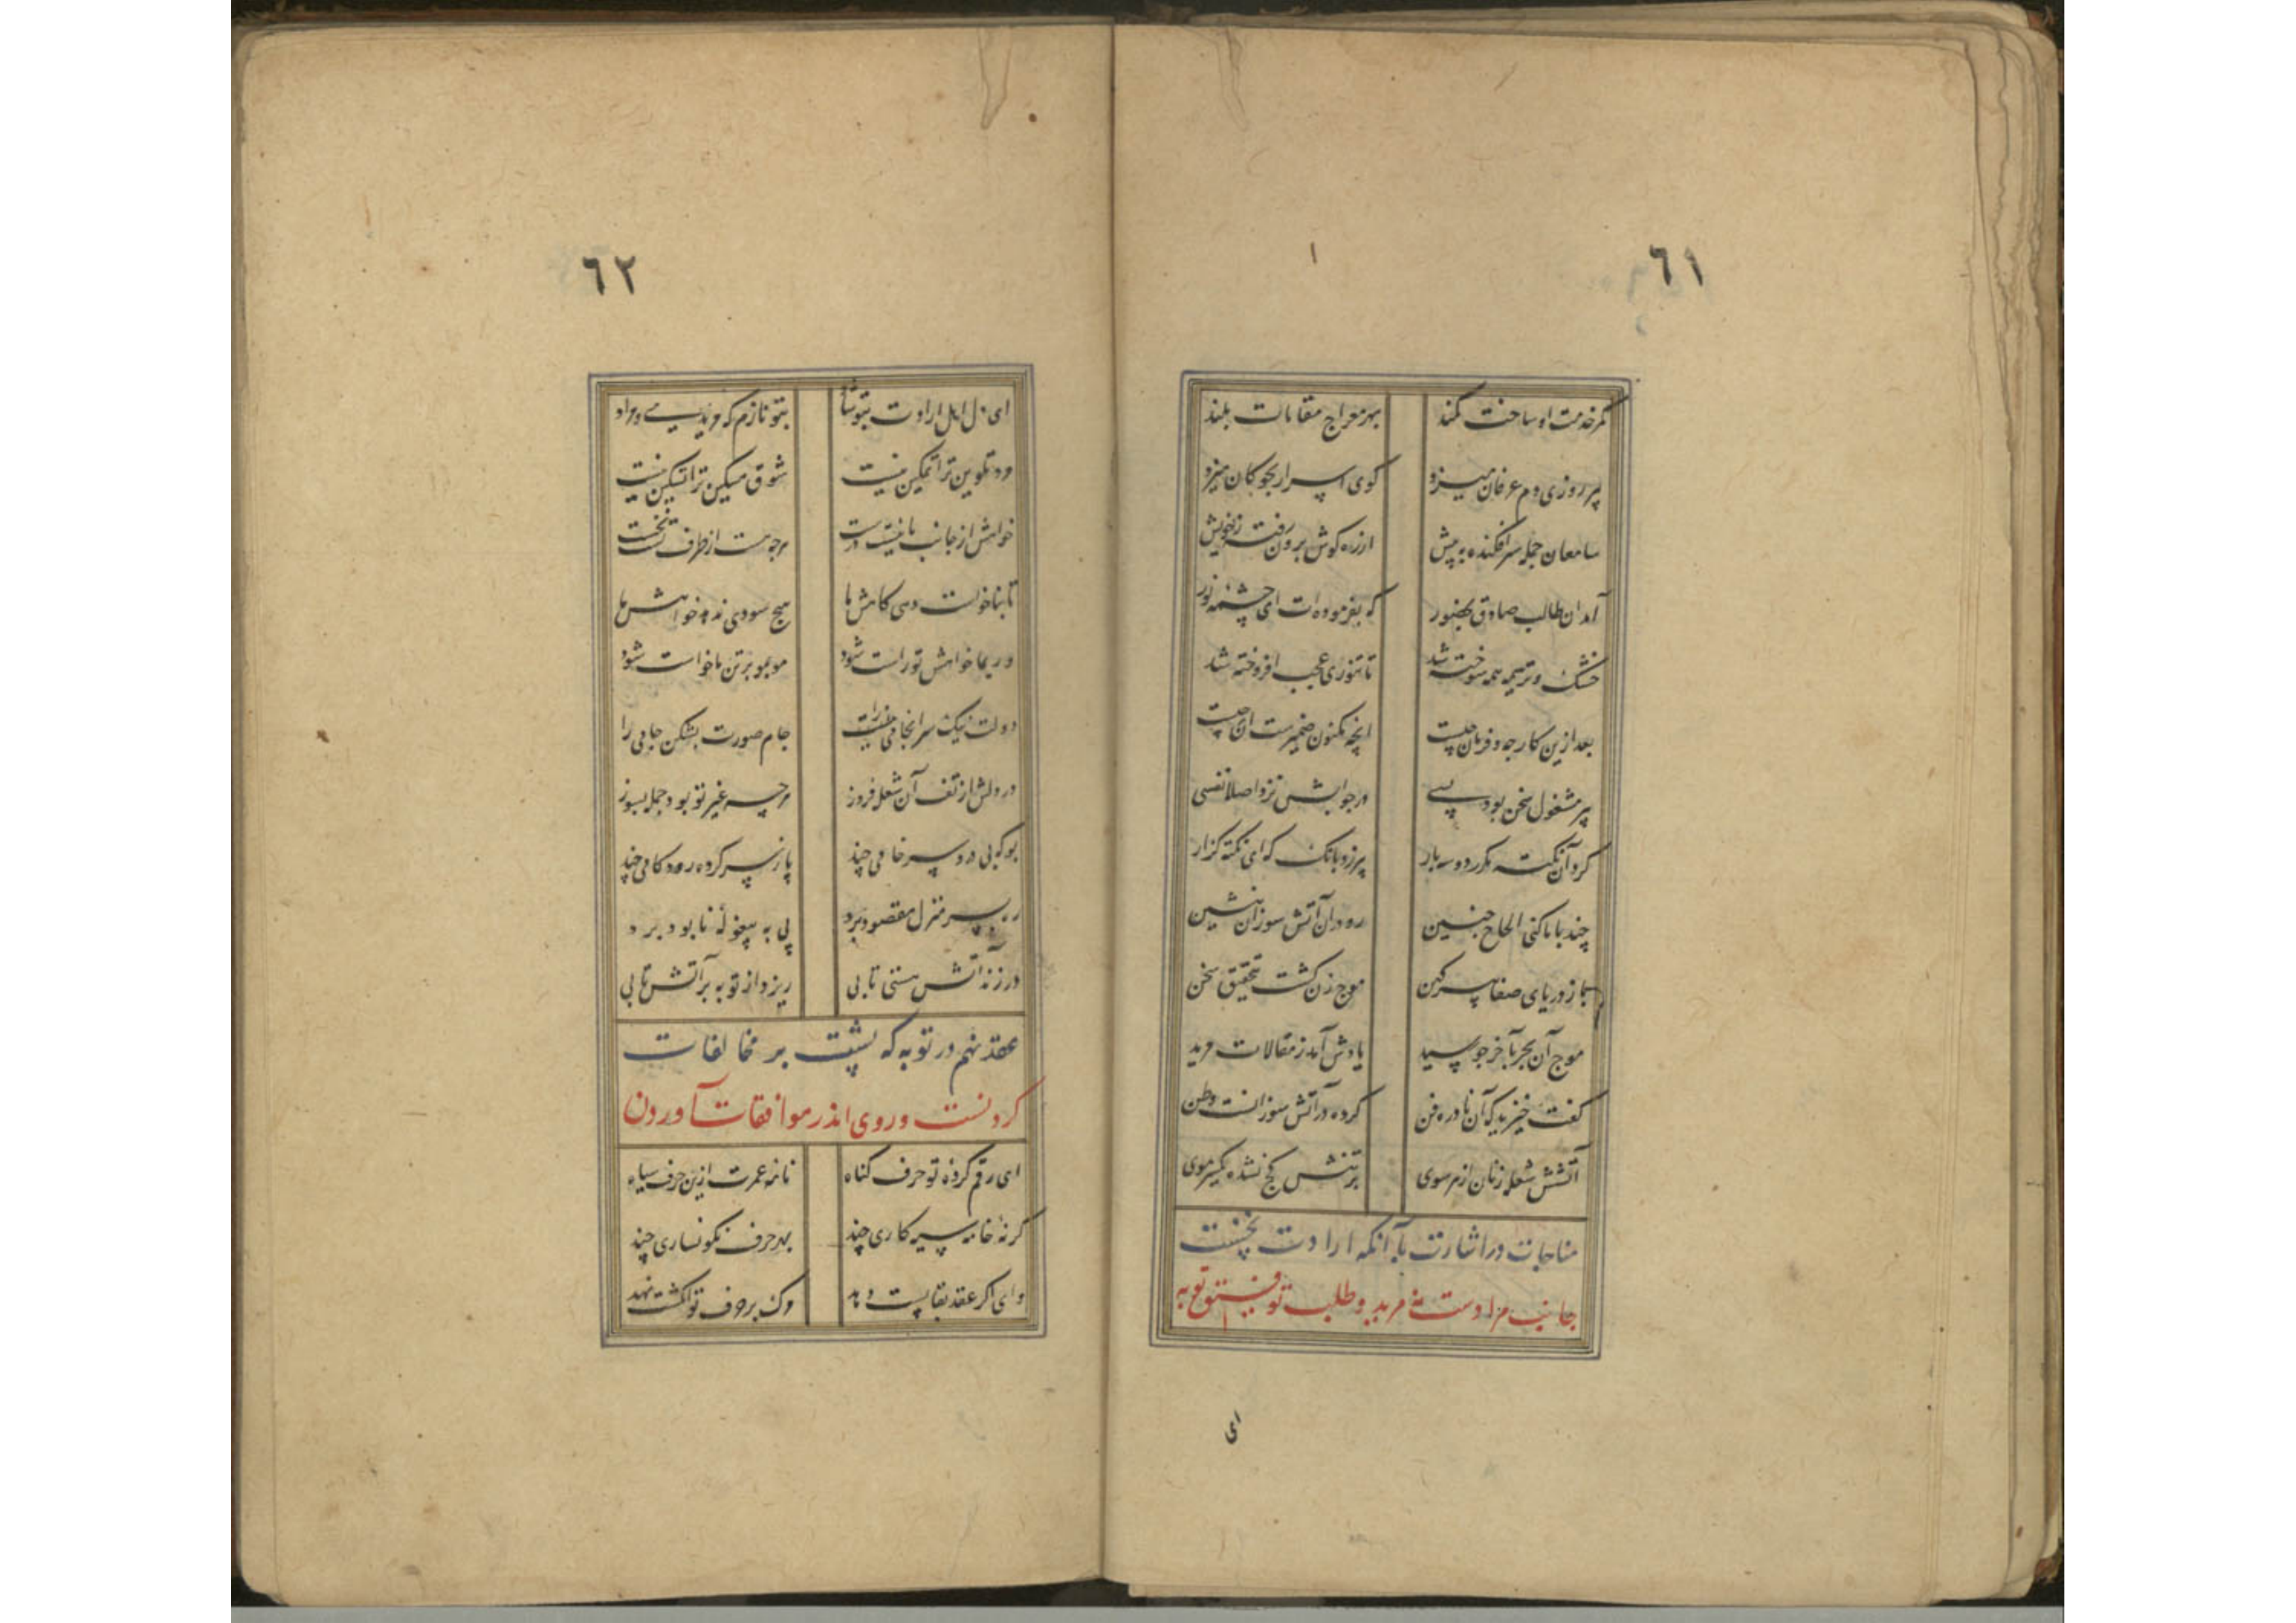 ٦١
کمر خدمت او ساخت کمند بهر معراج مقامات بلند
پیر روزی دم عرفان میزد کوی اسرار بچوکان میزد
سامعان جمله سرافکنده به پیش از ره کوش برون رفته ز خویش
آمد آن طالب صادق بحضور که بفرموده ات ای چشمه نور
خشک و تر همه سوخته شد تا تنوری عجب افروخته شد
بعد ازین کار چه و فرمان چیست انچه مکنون ضمیرست آن چیست
پیر مشغول سخن بود بسی در جوابش نزد اصلا نفسی
کرد آن نکته مکرر دو سه بار پیر زد بانک که ای نکته کزار
چند با ما کنی الحاح چنین رو در آن آتش سوزان بنشین
باز دریای صفا پیر کهن موج زن کشت بتحقیق سخن
موج آن بحر بآخر چو رسید یادش آمد ز مقالات مرید
کفت خیزید که آن نادره فن کرده در آتش سوزانست وطن
آتشش شعله زنان از هر سوی بر تنش کج نشده یکسر موی
مناجات در اشارت بآنکه ارادت نخست
جانب مرادست نه مرید و طلب توفیق توبه
ای
٦٢
ای دل اهل ارادت بتو شاد بتو نازم که مریدی و مراد
مرد تلوین ترا تمکین نیست شوق مسکین ترا تسکین نیست
خواهش از جانب ما نیست درست هرچه هست از طرف تست نخست
تا بناخواست دهی کاهش ما هیچ سودی ندهد خواهش ما
ور بما خواهش تو راست شود مو بمو بر تن ما خواست شود
دولت نیک سرانجامی را جام صورت بشکن جامی را
در دلش از تف آن شعله فروز هرچه غیر تو بود جمله بسوز
بو که بی درد سر خامی چند پا ز سر کرده رود کامی چند
ره بسر منزل مقصود برد پی به بیغوله نابود برد
در زند آتش هستی تابی ریزد از توبه بر آتش آبی
عقد نهم در توبه که پشت بر مخالفات
کردنست و روی اندر موافقات آوردن
ای رقم کرده تو حرف کناه نامه عمرت ازین حرف سیاه
کر نه خامه سیه کاری چند بهر حرف نکونساری چند
وای اکر عقد بقا پست دهد وک بر حرف تو انکشت نهد